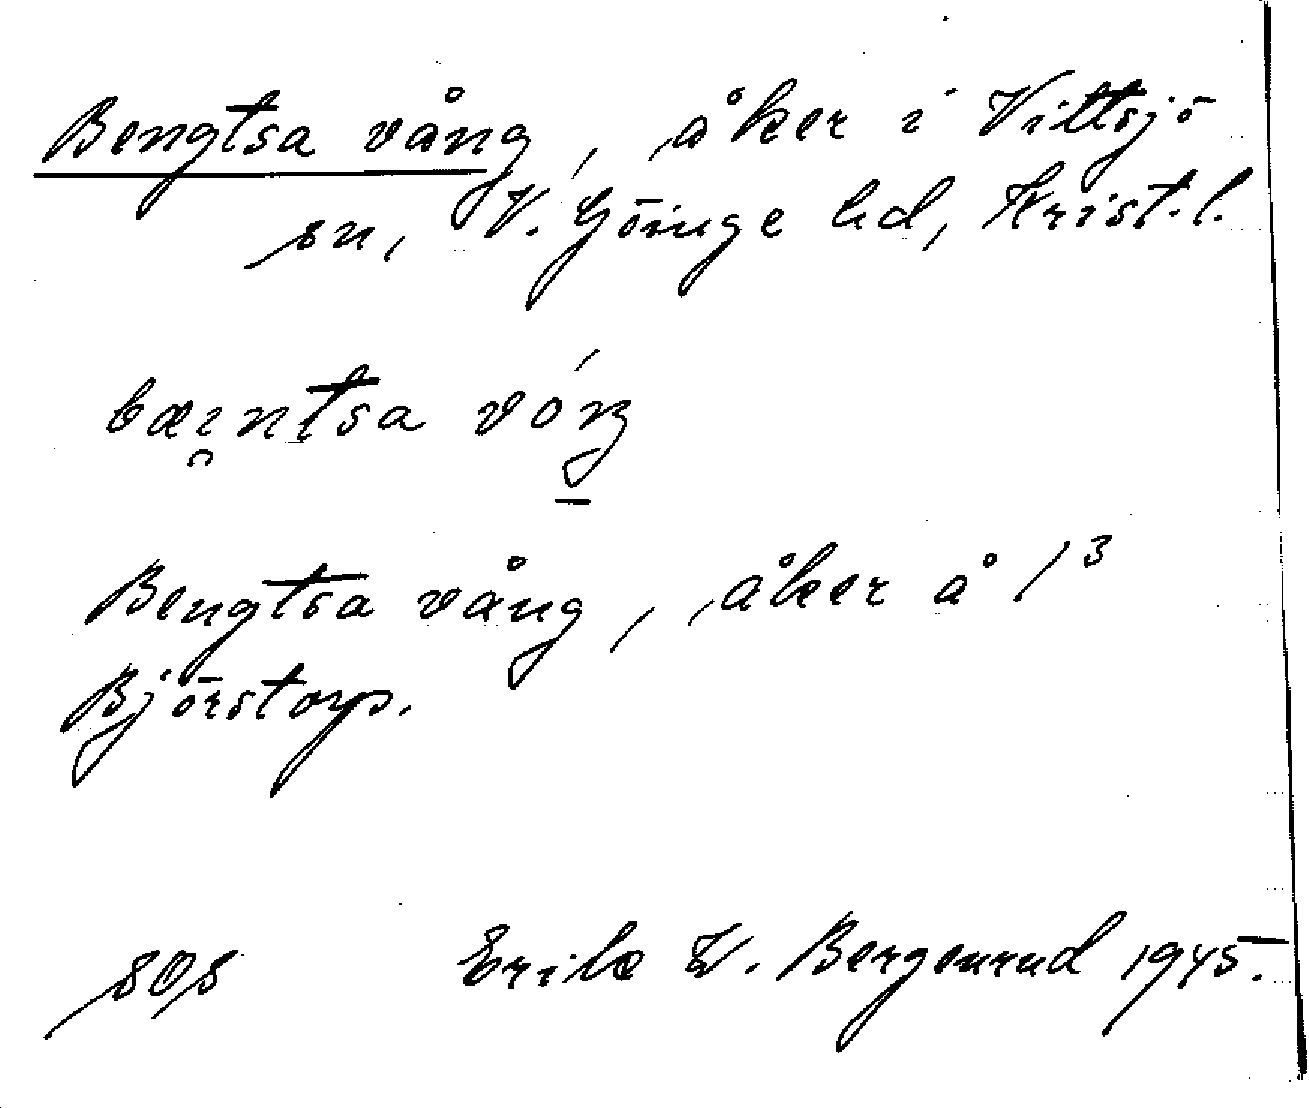 Bengtsa vång, åker i Vittsjö
sn, V. Göinge hd, Krist.l.
bæi̯ntsa vóŋ
Bengtsa vång, åker å 1³
Björstorp.
Erik W. Bergenrud 1945.